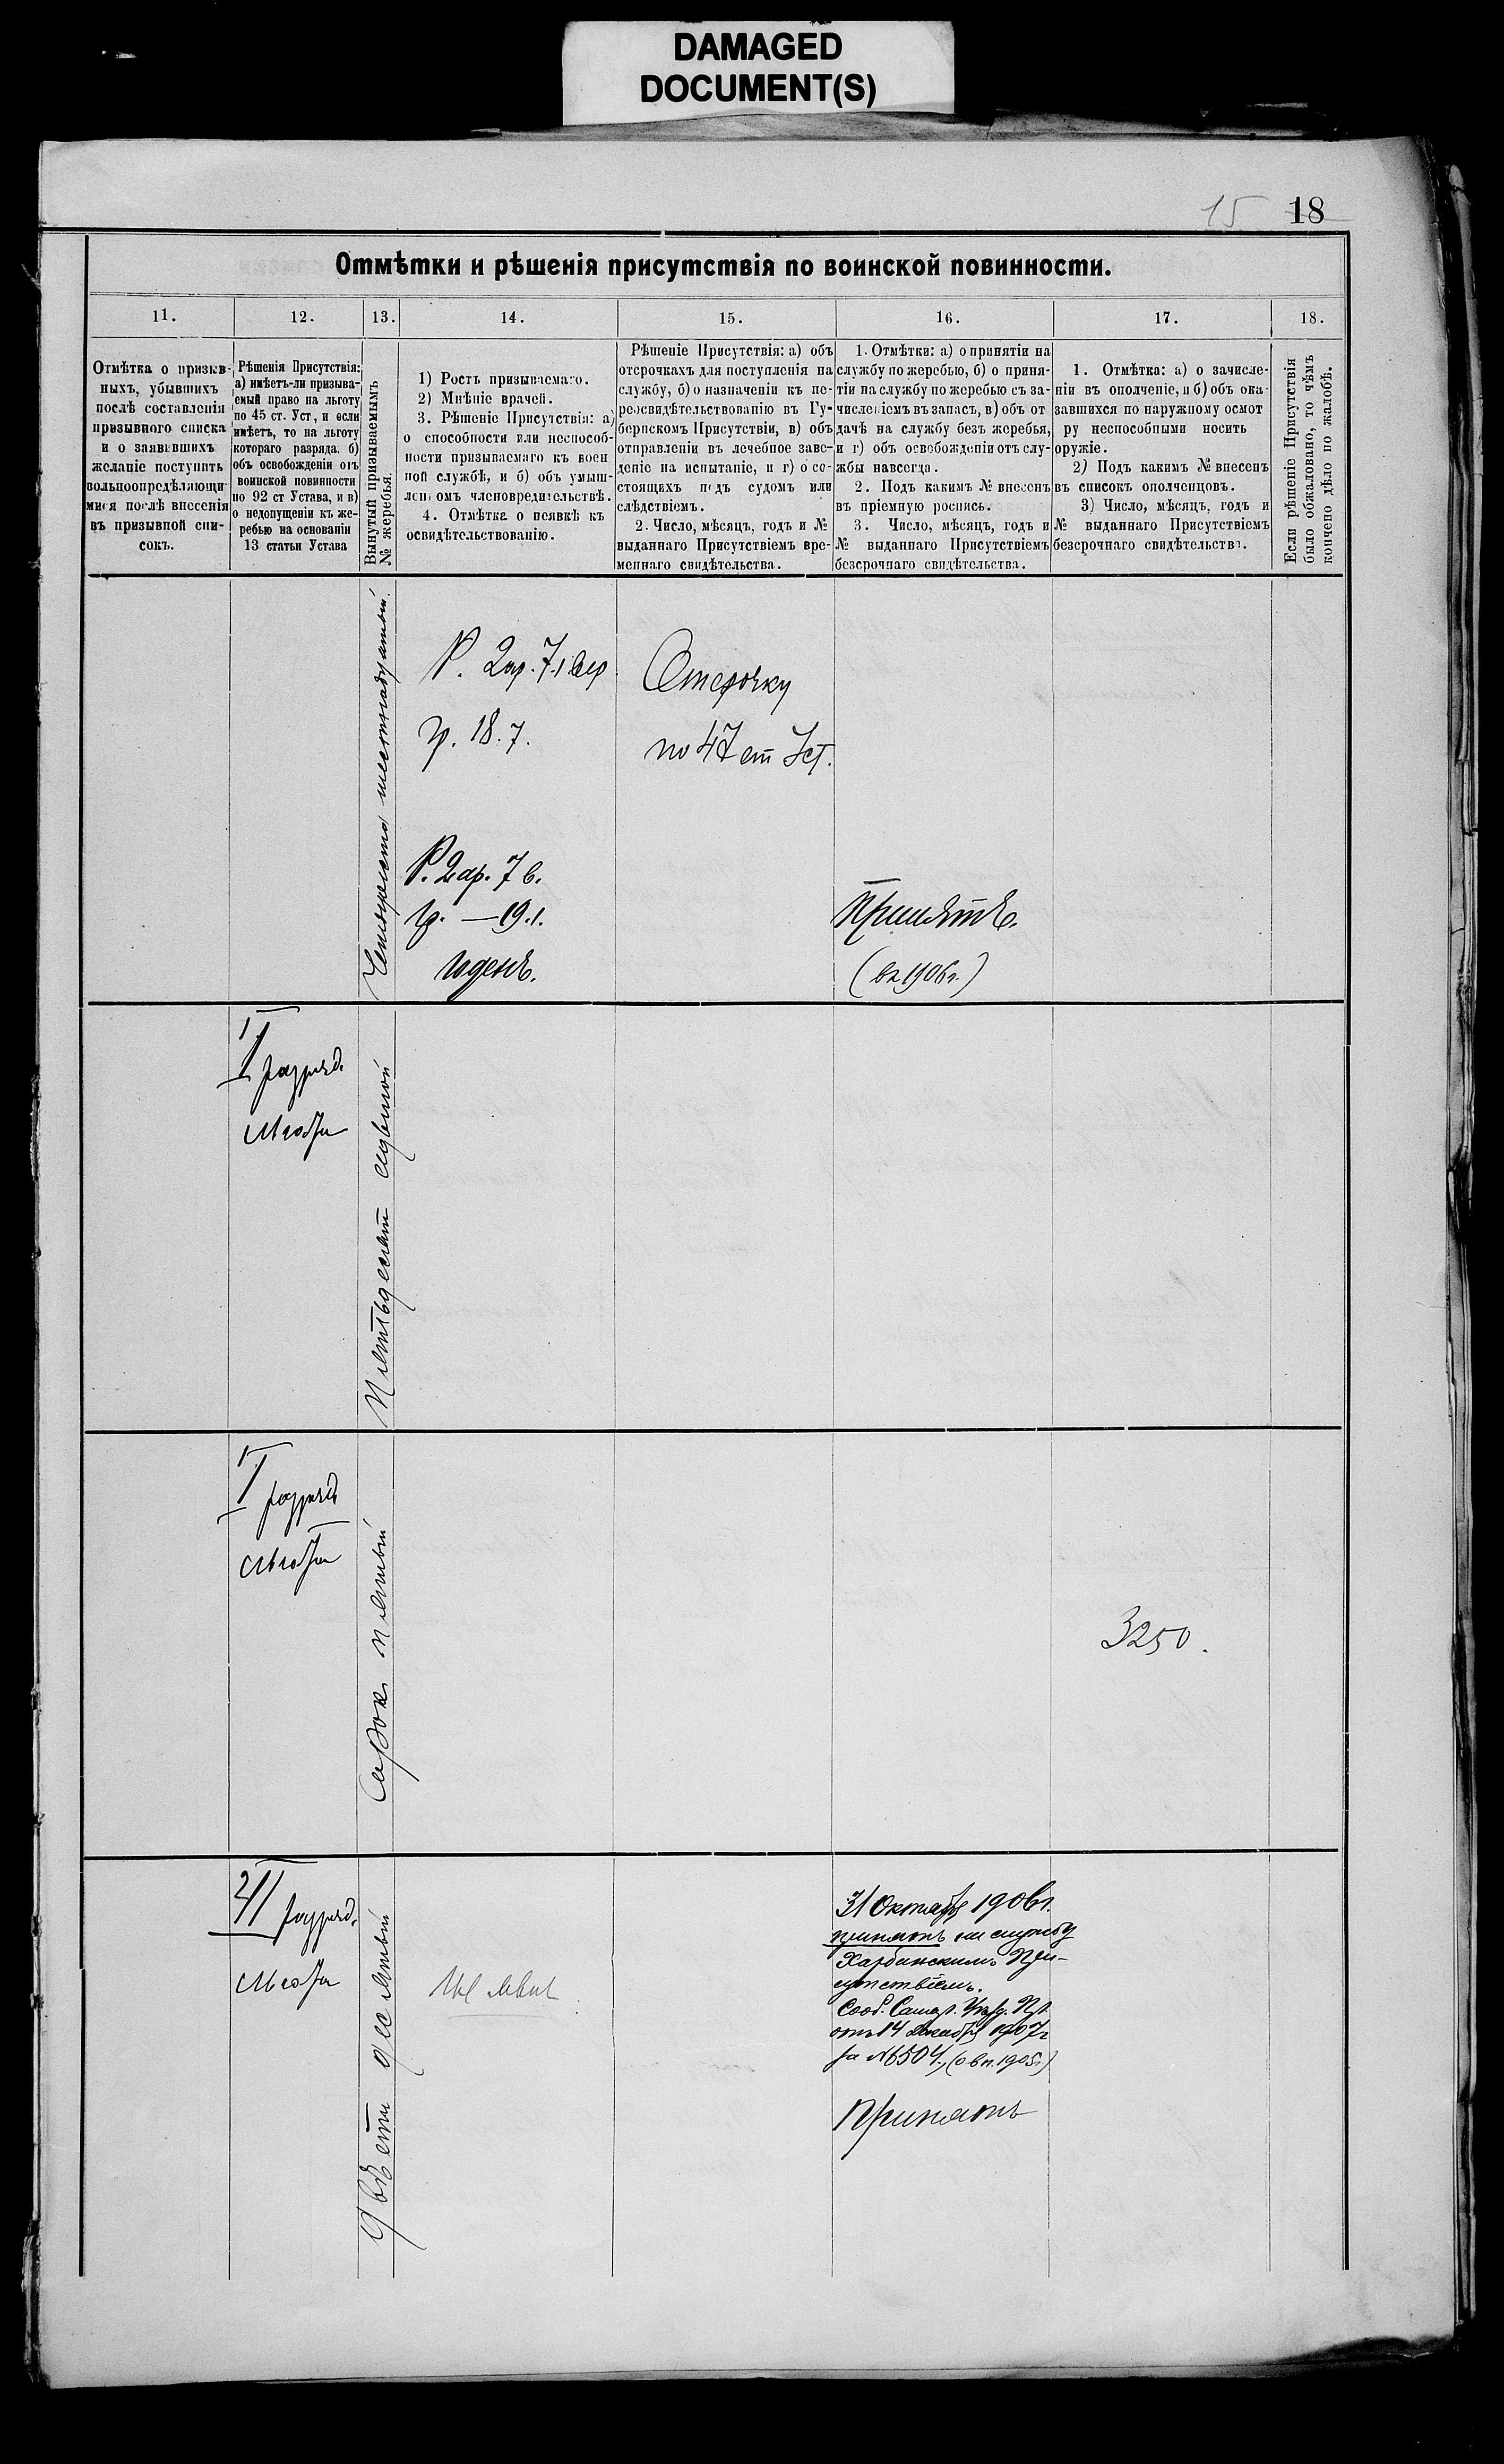 DAMAGED
DOCUMENT(S)
15 18
Отмѣтки и рѣшенія присутствія по воинской повинности.
11.
12.
13.
14.
15.
16.
17.
18.
Отмѣтка о призыв-
ныхъ, убывшихъ
послѣ составленія
призывного списка
и о заявившихъ
желаніе поступить
вольноопредѣляющи-
мися послѣ внесенія
въ призывной спи-
сокъ.
Рѣшенія Присутствія:
а) имѣетъ-ли призыва-
емый право на льготу
по 45 ст. Уст, и если
имѣетъ, то на льготу
котораго разряда. б)
объ освобожденіи отъ
воинской повинности
по 92 ст Устава, и в)
о недопущеніи къ же-
ребью на основаніи
13 статьи Устава
Вынутый призываемымъ
№ жеребья.
1) Ростъ призываемаго.
2) Мнѣніе врачей.
3. Рѣшеніе Присутствія: а)
о способности или неспособ-
ности призываемаго къ воен
ной службѣ, и б) объ умыш-
леномъ членовредительствѣ.
4. Отмѣтка о неявкѣ къ
освидѣтельствованію.
Рѣшеніе Присутствія: а) объ
отсрочкахъ для поступленія на
службу, б) о назначеніи къ пе-
реосвидѣтельствованію въ Гу-
бернскомъ Присутствіи, в) объ
отправленіи въ лечебное заве-
деніе на испытаніе, и г) о со-
стоящихъ подъ судомъ или
слѣдствіемъ.
2. Число, мѣсяцъ, годъ и №
выданнаго Присутствіемъ вре-
меннаго свидѣтельства.
1. Отмѣтки: а) о принятіи на
службу по жеребью, б) о приня-
тіи на службу по жеребью съ за-
численіемъ въ запасъ, в) объ от
дачѣ на службу безъ жеребья,
и г) объ освобожденіи отъ слу-
жбы навсегда.
2. Подъ какимъ № внесенъ
въ пріемную роспись.
3. Число, мѣсяцъ, годъ и
№ выданнаго Присутствіемъ
безсрочнаго свидѣтельства.
1. Отмѣтка: а) о зачисле-
ніи въ ополченіе, и б) объ ока-
завшихся по наружному осмот
ру неспособными носить
оружіе.
2) Подъ какимъ № внесенъ
въ списокъ ополченцовъ.
3) Число, мѣсяцъ, годъ и
№ выданнаго Присутствіемъ
безсрочнаго свидѣтельства.
Если рѣшеніе Присутствія
было обжаловано, то чѣмъ
кончено дѣло по жалобѣ.
Четыреста шестнадцатый.
Р. 2 ар. 7.1 вер
гр. 18.7.
Отсрочку
по 47 ст Уст.
Р. 2 ар. 7 в.
гр. — 19.1.
годенъ.
Принятъ.
(въ 1906 г.)
I разряд.
льготы
Пятьдесят седьмой
I разряд
льготы
Сорок пятый
3250.
II разряд.
льготы
Двѣсти десятый
Не явил
31 Октября 1906 г.
принятъ на службу
Харбинскимъ При-
сутствіемъ.
отъ 14 декабря 1907 г
за № 504,
Принятъ